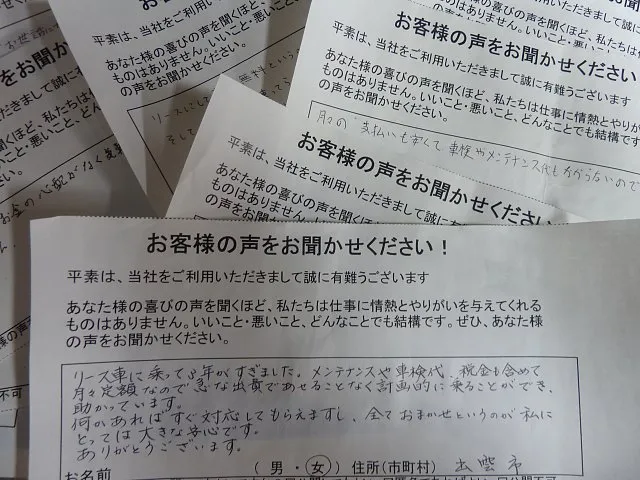 お世話に
の声をお聞か
まして誠に
ほど、私たちは
いこと、どんな
お金の心配がなく
お客様の声をお聞かせ
平素は、当社をご利用いただきまして誠に有
あなた様の喜びの声を聞くほど、私たちは仕事
ものはありません。いいこと・悪いこと、
の声をお聞かせください。
お客様の声をお聞かせください
平素は、当社をご利用いただきまして誠に有難うございます
あなた様の喜びの声を聞くほど、私たちは仕事に情熱とやりがい
ものはありません。いいこと・悪いこと、どんなことでも結構です
の声をお聞かせください。
月々の支払いも安くて車検やメンテナンス代もかからないので
お客様の声をお聞かせください
平素は、当社をご利用いただきまして誠に有難
あなた様の喜びの声を聞くほど、私たちは仕事に情熱
ものはありません。いいこと・悪いこと、どん
の声をお聞かせください。
お客様の声をお聞かせください！
平素は、当社をご利用いただきまして誠に有難うございます
あなた様の喜びの声を聞くほど、私たちは仕事に情熱とやりがいを与えてくれる
ものはありません。いいこと・悪いこと、どんなことでも結構です。ぜひ、あなた様
の声をお聞かせください。
リース車に乗って3年がすぎました。メンテナンスや車検代、税金も含めて
月々定額なので急な出費であせることなく計画的に乗ることができ、
助かっています。
何かあればすぐ対応してもらえますし、全ておまかせというのが私に
とっては大きな安心です。
ありがとうございます。
お名前 （ 男 ・ 女 ） 住所（市町村） 出雲市